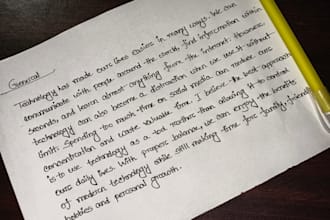 General
Technology has made ours lives easier in many ways. We can
communicate with people around the world, find information within
seconds, and learn almost anything from the internet. However,
technology can also become a distraction when we use it without
limit. Spending too much time on social media can reduce ours
concentration and waste valuable time. I believe the best approach
is to use technology as a tool rather than allowing it to control
ours daily lives. With proper balance, we can enjoy the benefits
of modern technology while still making time for family, friends,
hobbies and personal growth.